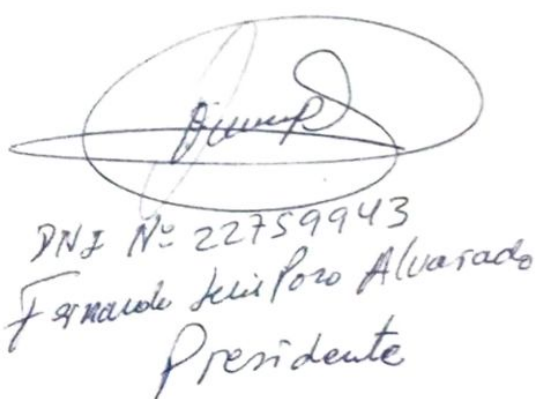 DNI Nº 22759943
Fernando Luis Pozo Alvarado
Presidente